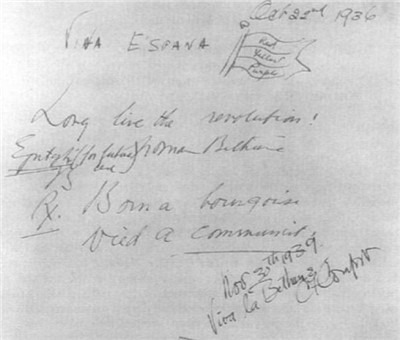 Oct 22nd 1936
Viva ESPANA
Red
Yellow
Purple
Long live the revolution!
Epitaph (for future) Norman Bethune
Rx. Born a bourgoise
Died a communist.
Nov. 30th 1939
Viva la Bethune